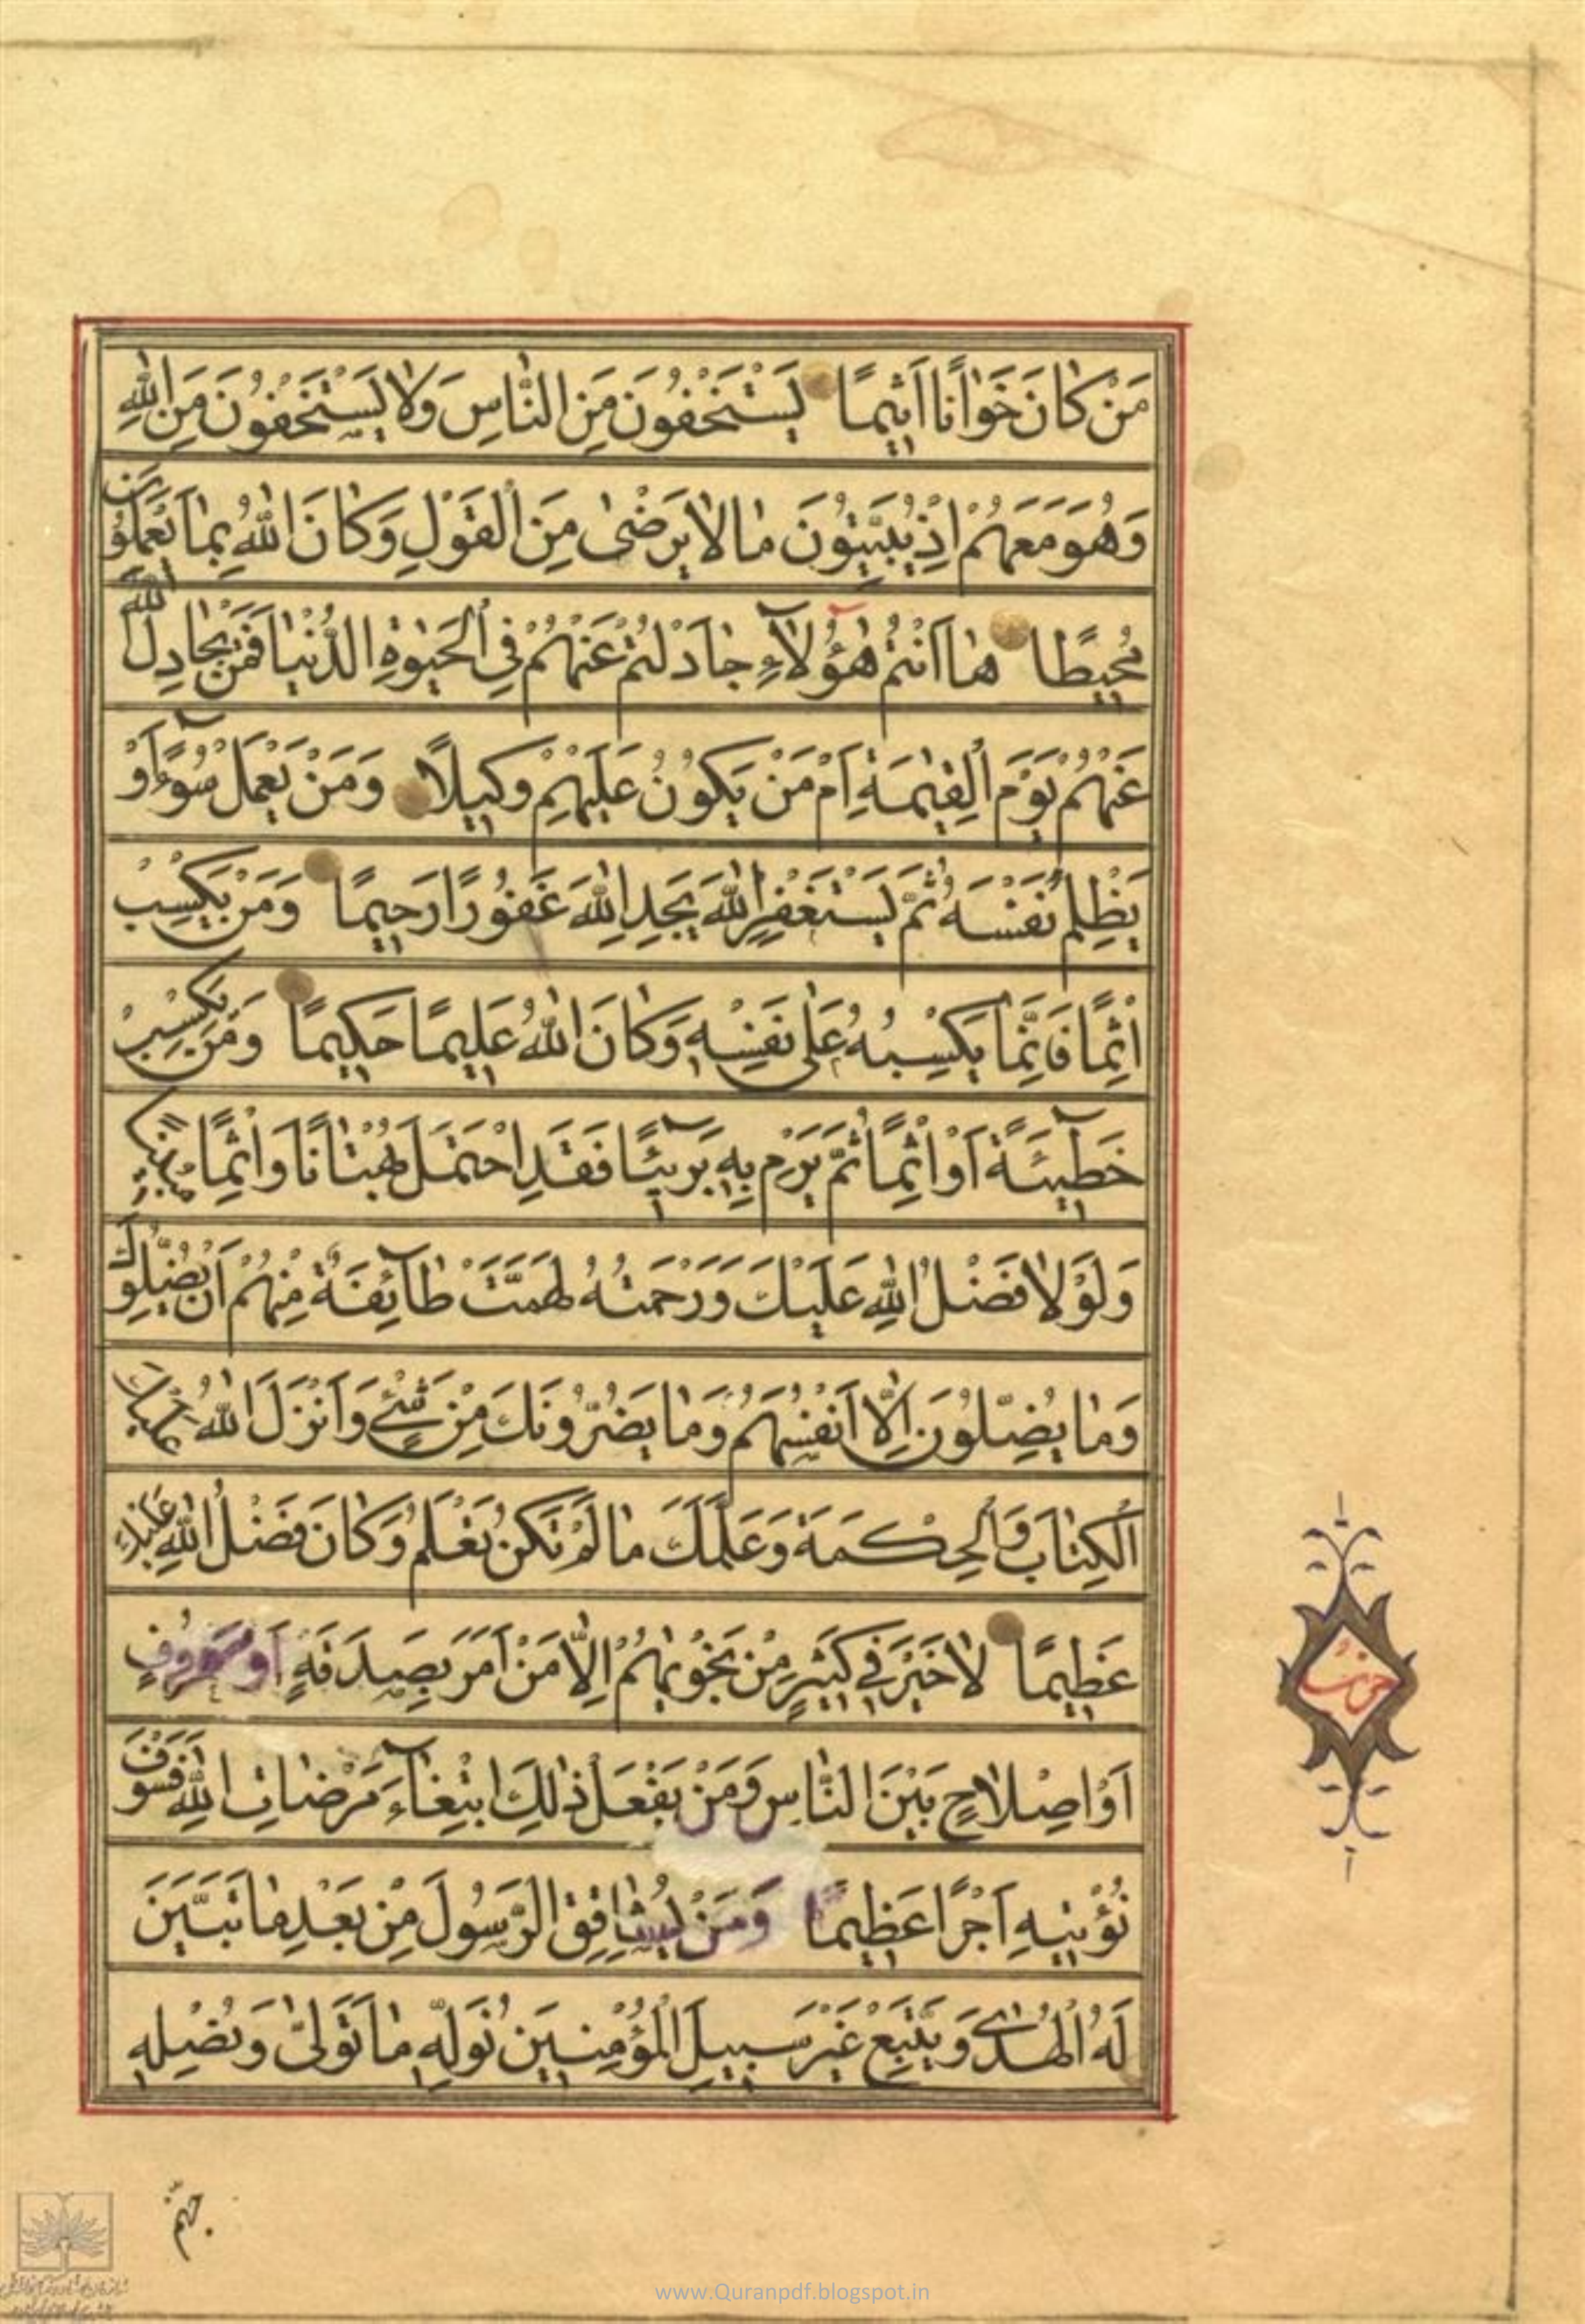 مَنْ كَانَ خَوَّانًا اَثِيمًا يَسْتَخْفُونَ مِنَ النَّاسِ وَلَا يَسْتَخْفُونَ مِنَ اللّٰهِ
وَهُوَ مَعَهُمْ اِذْ يُبَيِّتُونَ مَا لَا يَرْضٰى مِنَ الْقَوْلِ وَكَانَ اللّٰهُ بِمَا يَعْمَلُونَ
مُحِيطًا هَا اَنْتُمْ هٰؤُلَآءِ جَادَلْتُمْ عَنْهُمْ فِى الْحَيٰوةِ الدُّنْيَا فَمَنْ يُجَادِلُ اللّٰهَ
عَنْهُمْ يَوْمَ الْقِيٰمَةِ اَمْ مَنْ يَكُونُ عَلَيْهِمْ وَكِيلًا وَمَنْ يَعْمَلْ سُوٓءًا اَوْ
يَظْلِمْ نَفْسَهُ ثُمَّ يَسْتَغْفِرِ اللّٰهَ يَجِدِ اللّٰهَ غَفُورًا رَحِيمًا وَمَنْ يَكْسِبْ
اِثْمًا فَاِنَّمَا يَكْسِبُهُ عَلٰى نَفْسِهِ وَكَانَ اللّٰهُ عَلِيمًا حَكِيمًا وَمَنْ يَكْسِبْ
خَطِيٓئَةً اَوْ اِثْمًا ثُمَّ يَرْمِ بِهِ بَرِيٓئًا فَقَدِ احْتَمَلَ بُهْتَانًا وَاِثْمًا مُبِينًا
وَلَوْلَا فَضْلُ اللّٰهِ عَلَيْكَ وَرَحْمَتُهُ لَهَمَّتْ طَآئِفَةٌ مِنْهُمْ اَنْ يُضِلُّوكَ
وَمَا يُضِلُّونَ اِلَّا اَنْفُسَهُمْ وَمَا يَضُرُّونَكَ مِنْ شَىْءٍ وَاَنْزَلَ اللّٰهُ عَلَيْكَ
الْكِتَابَ وَالْحِكْمَةَ وَعَلَّمَكَ مَا لَمْ تَكُنْ تَعْلَمُ وَكَانَ فَضْلُ اللّٰهِ عَلَيْكَ
عَظِيمًا لَا خَيْرَ فِى كَثِيرٍ مِنْ نَجْوٰيهُمْ اِلَّا مَنْ اَمَرَ بِصَدَقَةٍ اَوْ مَعْرُوفٍ
اَوْ اِصْلَاحٍ بَيْنَ النَّاسِ وَمَنْ يَفْعَلْ ذٰلِكَ ابْتِغَآءَ مَرْضَاتِ اللّٰهِ فَسَوْفَ
نُؤْتِيهِ اَجْرًا عَظِيمًا وَمَنْ يُشَاقِقِ الرَّسُولَ مِنْ بَعْدِ مَا تَبَيَّنَ
لَهُ الْهُدٰى وَيَتَّبِعْ غَيْرَ سَبِيلِ الْمُؤْمِنِينَ نُوَلِّهِ مَا تَوَلّٰى وَنُصْلِهِ
جهنم
www.Quranpdf.blogspot.in